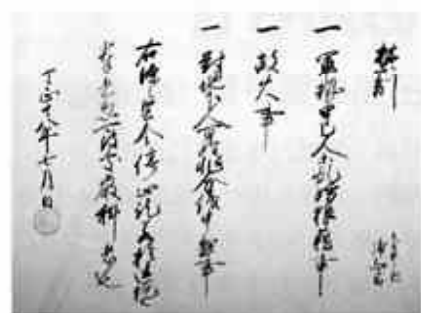 禁制
一 軍勢甲乙人等濫妨狼藉事
一 放火事
一 対地下人百姓非分儀申懸事
右條々堅令停止訖若於違犯
輩者忽可被処厳科者也
天正十八年七月日